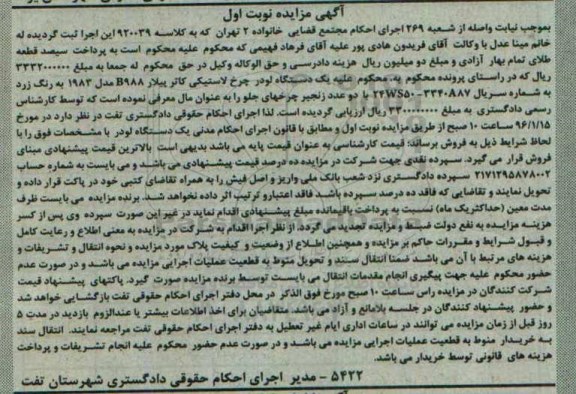 آگهی مزایده نوبت اول
بموجب نیابت واصله از شعبه ۲۶۹ اجرای احکام مجتمع قضایی خانواده ۲ تهران که به کلاسه ۹۲۰۰۳۹ این اجرا ثبت گردیده له
خانم مینا عدل با وکالت آقای فریدون هادی پور علیه آقای فرهاد فهیمی که محکوم علیه محکوم است به پرداخت سیصد قطعه
طلای تمام بهار آزادی و مبلغ دو میلیون ریال هزینه دادرسی و حق الوکاله وکیل در حق محکوم له جمعا به مبلغ ۳۳۳۲۰۰۰۰۰۰
ریال که در راستای پرونده محکوم به، محکوم علیه یک دستگاه لودر چرخ لاستیکی کاتر پیلار B۹۸۸ مدل ۱۹۸۳ به رنگ زرد
به شماره سریال ۳۳۴۰A۸۷-۲۴WS۵۰ با دو عدد زنجیر چرخهای جلو را به عنوان مال معرفی نموده است که توسط کارشناس
رسمی دادگستری به مبلغ ریال ارزیابی گردیده است. لذا اجرای احکام حقوقی دادگستری تفت در نظر دارد در مورخ
۹۶/۱/۱۵ ساعت ۱۰ صبح از طریق مزایده نوبت اول و مطابق با قانون اجرای احکام مدنی یک دستگاه لودر با مشخصات فوق را با
لحاظ شرایط ذیل به فروش برساند؛ قیمت کارشناسی به عنوان قیمت پایه می باشد بدیهی است بالاترین قیمت پیشنهادی مبنای
فروش قرار می گیرد. سپرده نقدی جهت شرکت در مزایده ده درصد قیمت پیشنهادی می باشد و می بایست به شماره حساب
۲۱۷۱۲۹۵۸۷۸۰۰۲ سپرده دادگستری نزد شعب بانک ملی واریز و اصل فیش را به همراه تقاضای کتبی خود در پاکت قرار داده و
تحویل نمایند و تقاضایی که فاقد ده درصد سپرده باشد فاقد اعتبار و ترتیب اثر داده نخواهد شد. برنده مزایده می بایست ظرف
مدت معین (حداکثر یک ماه) نسبت به پرداخت باقیمانده مبلغ پیشنهادی اقدام نماید در غیر این صورت سپرده وی پس از کسر
هزینه مزایده به نفع دولت ضبط و مزایده تجدید می گردد. از نظر اجرا اقدام به شرکت در مزایده به معنی اطلاع و رعایت کامل
و قبول شرایط و مقررات حاکم بر مزایده و همچنین اطلاع از وضعیت و کیفیت پلاک مورد مزایده و نحوه انتقال و تشریفات و
هزینه های مرتبط با آن می باشد ضمنا انتقال سند و تحویل منوط به قطعیت عملیات اجرایی مزایده می باشد و در صورت عدم
حضور محکوم علیه جهت پیگیری انجام مقدمات انتقال می بایست توسط برنده مزایده صورت گیرد. پاکتهای پیشنهاد قیمت
شرکت کنندگان در مزایده راس ساعت ۱۰ صبح مورخ فوق الذکر در محل دفتر اجرای احکام حقوقی تفت بازگشایی خواهد شد
و حضور پیشنهاد کنندگان در جلسه بلامانع و آزاد می باشد. متقاضیان برای اخذ اطلاعات بیشتر یا عنداللزوم بازدید در مدت ۵
روز قبل از زمان مزایده می توانند در ساعات اداری ایام غیر تعطیل به دفتر اجرای احکام حقوقی تفت مراجعه نمایند. انتقال سند
به خریدار منوط به قطعیت عملیات اجرایی مزایده می باشد و در صورت عدم حضور محکوم علیه انجام تشریفات و پرداخت
هزینه های قانونی توسط خریدار می باشد.
۵۴۲۲ - مدیر اجرای احکام حقوقی دادگستری شهرستان تفت